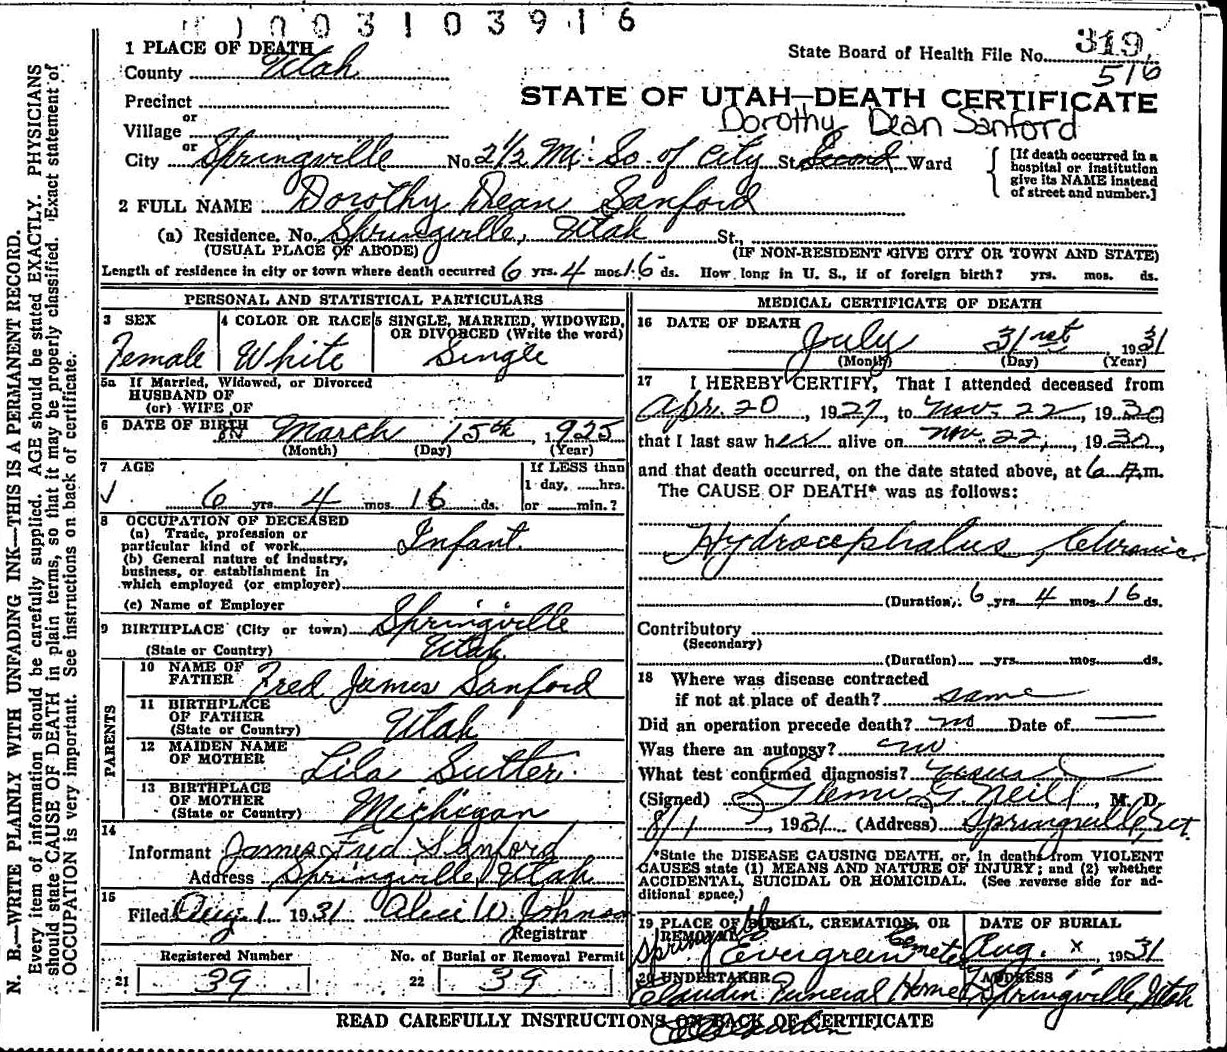 1003103916
1 PLACE OF DEATH
County Utah
State Board of Health File No. 319
516
Precinct
or
Village
STATE OF UTAH—DEATH CERTIFICATE
Dorothy Dean Sanford
or
City Springville No. 2 1/2 Mi. So. of City St. Second Ward
[If death occurred in a hospital or institution give its NAME instead of street and number.]
2 FULL NAME Dorothy Dean Sanford
(a) Residence. No. Springville, Utah St.,
(USUAL PLACE OF ABODE) (IF NON-RESIDENT GIVE CITY OR TOWN AND STATE)
Length of residence in city or town where death occurred 6 yrs. 4 mos. 16 ds. How long in U. S., if of foreign birth? yrs. mos. ds.
PERSONAL AND STATISTICAL PARTICULARS
3 SEX Female
4 COLOR OR RACE White
5 SINGLE, MARRIED, WIDOWED, OR DIVORCED (Write the word) Single
5a If Married, Widowed, or Divorced
HUSBAND OF
(or) WIFE OF
6 DATE OF BIRTH March 15th, 1925
(Month) (Day) (Year)
7 AGE
6 yrs. 4 mos. 16 ds.
If LESS than
1 day, hrs.
or min.?
8 OCCUPATION OF DECEASED
(a) Trade, profession or
particular kind of work Infant
(b) General nature of industry,
business, or establishment in
which employed (or employer)
(c) Name of Employer
9 BIRTHPLACE (City or town) Springville
(State or Country) Utah
PARENTS
10 NAME OF FATHER Fred James Sanford
11 BIRTHPLACE OF FATHER
(State or Country) Utah
12 MAIDEN NAME OF MOTHER Lila Sutter
13 BIRTHPLACE OF MOTHER
(State or Country) Michigan
14
Informant James Fred Sanford
Address Springville, Utah
15
Filed Aug. 1 1931 Alice W. Johnson
Registrar
Registered Number
21 39
No. of Burial or Removal Permit
22 39
MEDICAL CERTIFICATE OF DEATH
16 DATE OF DEATH
July 31st 1931
(Month) (Day) (Year)
17 I HEREBY CERTIFY, That I attended deceased from
Apr. 20, 1927, to Nov. 22, 1930
that I last saw her alive on Nov. 22, 1930,
and that death occurred, on the date stated above, at 6 A.m.
The CAUSE OF DEATH* was as follows:
Hydrocephalus, Chronic
(Duration) 6 yrs. 4 mos. 16 ds.
Contributory
(Secondary)
(Duration) yrs. mos. ds.
18 Where was disease contracted
if not at place of death? same
Did an operation precede death? no Date of
Was there an autopsy? no
What test confirmed diagnosis?
(Signed) Neill, M. D.
8/1, 1931 (Address) Springville, Ut.
*State the DISEASE CAUSING DEATH, or, in deaths from VIOLENT
CAUSES state (1) MEANS AND NATURE OF INJURY; and (2) whether
ACCIDENTAL, SUICIDAL OR HOMICIDAL. (See reverse side for ad-
ditional space.)
19 PLACE OF BURIAL, CREMATION, OR REMOVAL
Evergreen
DATE OF BURIAL
Aug. x 1931
20 UNDERTAKER
Claudin Funeral Home
ADDRESS
Springville, Utah
READ CAREFULLY INSTRUCTIONS ON BACK OF CERTIFICATE
N. B.—WRITE PLAINLY WITH UNFADING INK—THIS IS A PERMANENT RECORD.
Every item of information should be carefully supplied. AGE should be stated EXACTLY. PHYSICIANS
should state CAUSE OF DEATH in plain terms, so that it may be properly classified. Exact statement of
OCCUPATION is very important. See instructions on back of certificate.